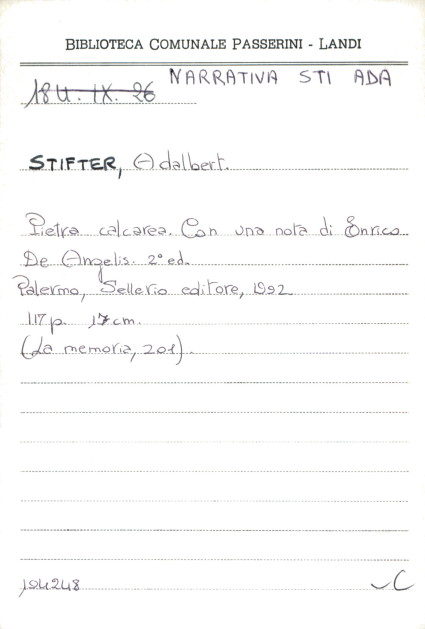 BIBLIOTECA COMUNALE PASSERINI - LANDI
NARRATIVA STI ADA
18 U. IX. 26
STIFTER, Adalbert.
Pietra calcarea. Con una nota di Enrico
De Angelis. 2ª ed.
Palermo, Sellerio editore, 1992
117 p. 17 cm.
(La memoria, 201).
194248
C